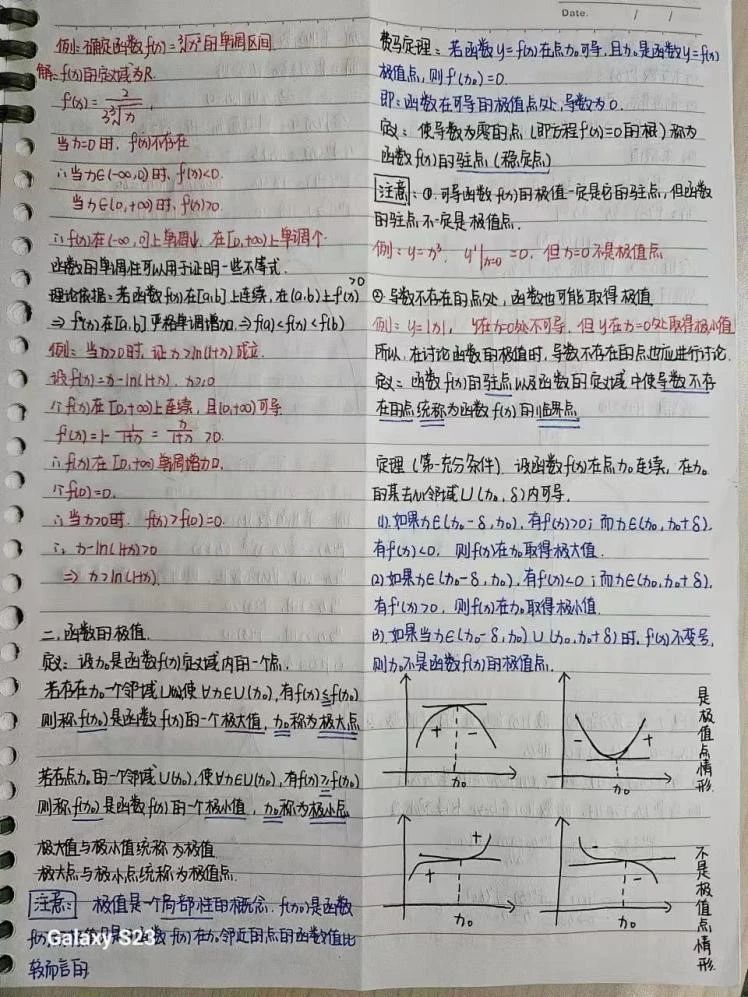 例:确定函数f(x)=³√x²的单调区间.
解:f(x)的定义域为R.
f'(x)=2/(3³√x),
当x=0时,f'(x)不存在
∴当x∈(-∞,0)时,f'(x)<0.
当x∈(0,+∞)时,f'(x)>0.
∴f(x)在(-∞,0]上单调↓,在[0,+∞)上单调↑.
函数的单调性可以用于证明一些不等式.
理论依据:若函数f(x)在[a,b]上连续,在(a,b)上f'(x)>0
⇒f(x)在[a,b]严格单调增加.⇒f(a)<f(x)<f(b)
例:当x>0时,证x>ln(1+x)成立.
设f(x)=x-ln(1+x).x≥0
∵f(x)在[0,+∞)上连续,且(0,+∞)可导
f'(x)=1-1/(1+x)=x/(1+x)>0.
∴f(x)在[0,+∞)单调增加.
∵f(0)=0.
∴当x>0时.f(x)>f(0)=0.
∴x-ln(1+x)>0
⇒x>ln(1+x).
二.函数的极值.
定义:设x₀是函数f(x)定义域内的一个点.
若存在x₀一个邻域U(x₀)使∀x∈U(x₀),有f(x)≤f(x₀)
则称f(x₀)是函数f(x)的一个极大值,x₀称为极大点
若存点x₀的一个邻域U(x₀),使∀x∈U(x₀),有f(x)≥f(x₀)
则称f(x₀)是函数f(x)的一个极小值,x₀称为极小点
极大值与极小值统称为极值
极大点与极小点统称为极值点.
注意:极值是一个局部性的概念.f(x₀)是函数
f(x) 函数f(x)在x₀邻近的点的函数值比
较而言的
Galaxy S23
Date. / /
费马定理:若函数y=f(x)在点x₀可导,且x₀是函数y=f(x)
极值点,则f'(x₀)=0.
即:函数在可导的极值点处,导数为0.
定义:使导数为零的点(即方程f'(x)=0的根)称为
函数f(x)的驻点(稳定点)
注意:①.可导函数f(x)的极值一定是它的驻点,但函数
的驻点不一定是极值点.
例:y=x³,y'|x=0=0,但x=0不是极值点
②导数不存在的点处,函数也可能取得极值
例:y=|x|,y在x=0处不可导,但y在x=0处取得极小值
所以,在讨论函数的极值时,导数不存在的点也应进行讨论.
定义:函数f(x)的驻点以及函数的定义域中使导数不存
在的点统称为函数f(x)的临界点.
定理(第一充分条件).设函数f(x)在点x₀连续,在x₀
的某去心邻域U(x₀,δ)内可导.
(1).如果x∈(x₀-δ,x₀),有f'(x)>0;而x∈(x₀,x₀+δ).
有f'(x)<0,则f(x)在x₀取得极大值.
(2)如果x∈(x₀-δ,x₀),有f'(x)<0;而x∈(x₀,x₀+δ).
有f'(x)>0,则f(x)在x₀取得极小值.
(3).如果当x∈(x₀-δ,x₀)∪(x₀,x₀+δ)时.f'(x)不变号,
则x₀不是函数f(x)的极值点.
+ -
x₀
- +
x₀
是极值点情形.
+ +
x₀
- -
x₀
不是极值点情形.